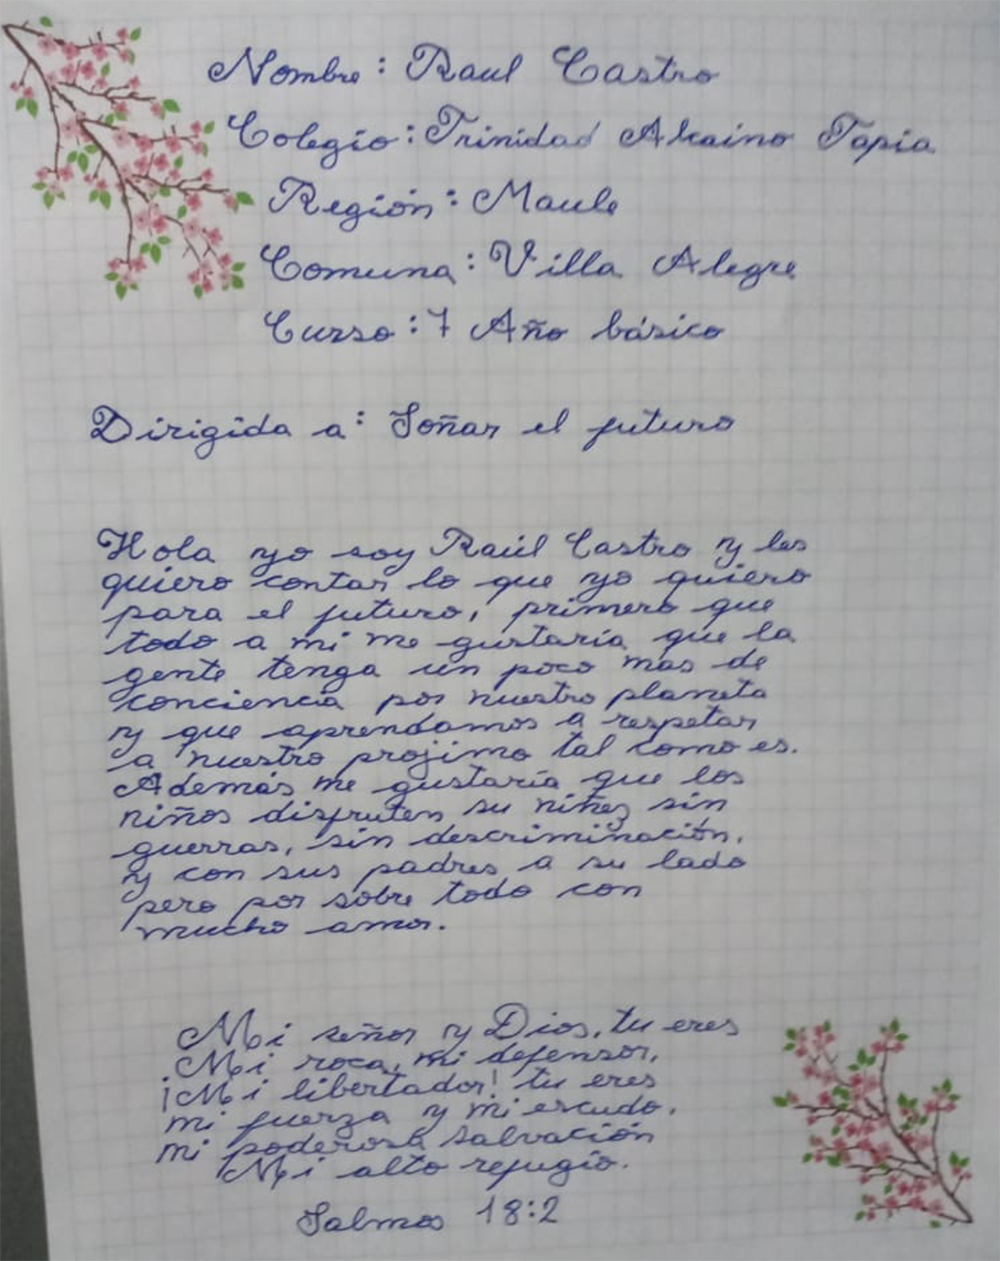 Nombre : Raul Castro
Colegio : Trinidad Alcaino Tapia
Región : Maule
Comuna : Villa Alegre
Curso : 7 Año básico
Dirigida a : Soñar el futuro
Hola yo soy Raúl Castro y les
quiero contar lo que yo quiero
para el futuro, primero que
todo a mi me gustaría que la
gente tenga un poco mas de
conciencia por nuestro planeta
y que aprendamos a respetar
a nuestro projimo tal como es.
Además me gustaría que los
niños disfruten su niñez sin
guerras, sin descriminación,
y con sus padres a su lado
pero por sobre todo con
mucho amor.
Mi señor y Dios, tu eres
Mi roca, mi defensor,
¡Mi libertador! tu eres
mi fuerza y mi escudo,
mi poderosa salvación
Mi alto refugio.
Salmos 18:2